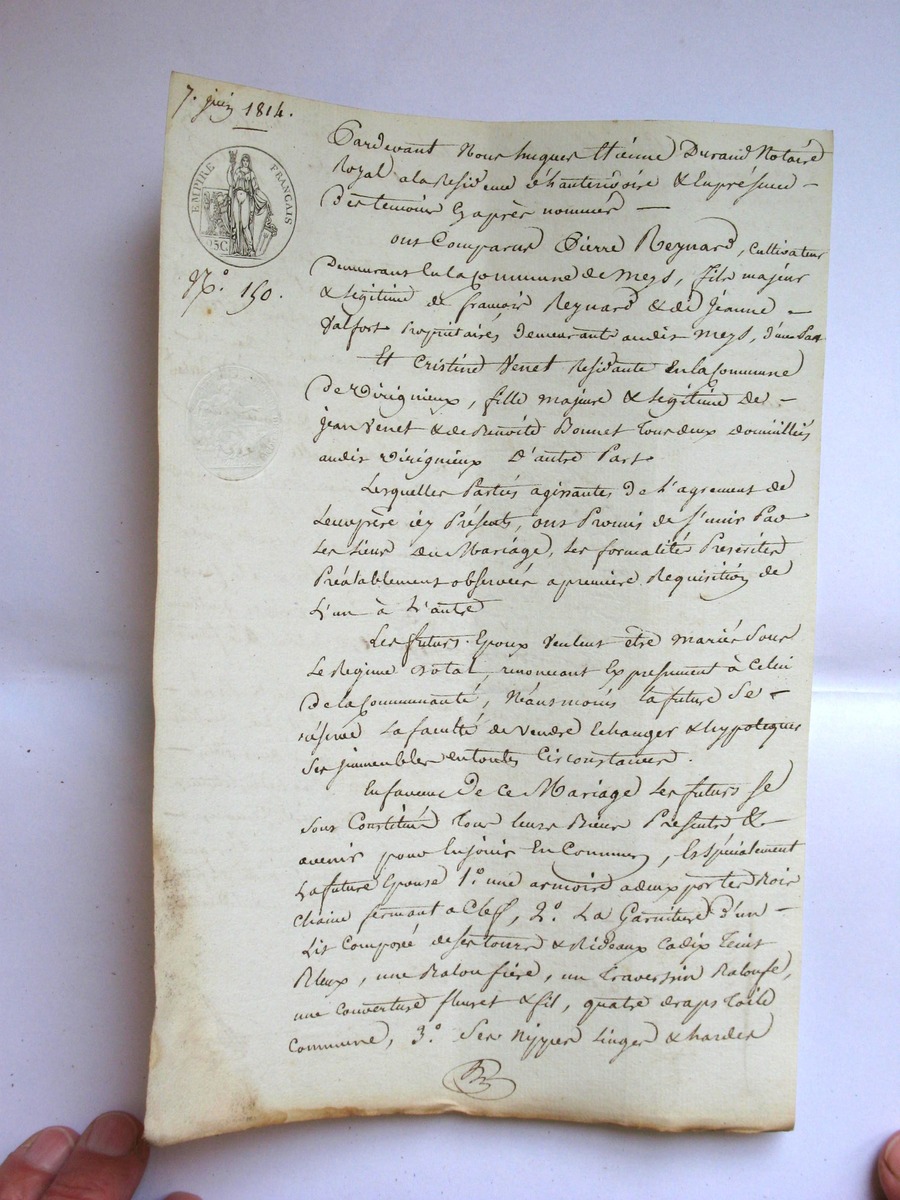 7. juin 1814.
EMPIRE FRANÇAIS
25C
N.º 150.
Pardevant Nous hugues Etienne Durand Notaire
Royal a la Residence d'hauterivoire & En présence
des temoins Cy après nommés
ont Comparus Pierre Reynard, Cultivateur
Demeurant En la Commune de Meys, fils majeur
& légitime de françois Reynard & de jeanne
Valfort Propriétaires, demeurants audit Meys, d'une Part
Et Cristine Venet Residante En la Commune
de Virigneux, fille majeure & légitime de
jean Venet & de Benoite Bonnet tous deux domiciliés
audit Virigneux D'autre Part
Lesquelles Parties agissantes de L'agrement de
Leurs père icy Presents, ont Promis de s'unir Par
Les Liens du Mariage, Les formalités Prescrites
Préalablement observées a première Requisition de
L'un à L'autre
Les futurs Epoux veulent être mariés Sous
Le Regime Dotal, renoncant Expressement à Celui
De la Communauté, Néansmoins la future Se
réserve La faculté de vendre Echanger & hypotequer
Ses immeubles en toutes Circonstances.
En faveur de ce Mariage Les futurs se
sont Constitué tous leurs Biens Presents &
avenir pour En jouir En Commun, & Spécialement
La future Epouse 1.º une armoire a deux portes Bois
Chaine fermant a Clef, 2.º La Garniture d'un
Lit Composé de ses tours & Rideaux Cadix teint
Bleux, une Balouffière, un traversin Balouffe,
une Couverture fleuret & fil, quatre draps toile
Commune, 3.º Ses nippes Linges & hardes